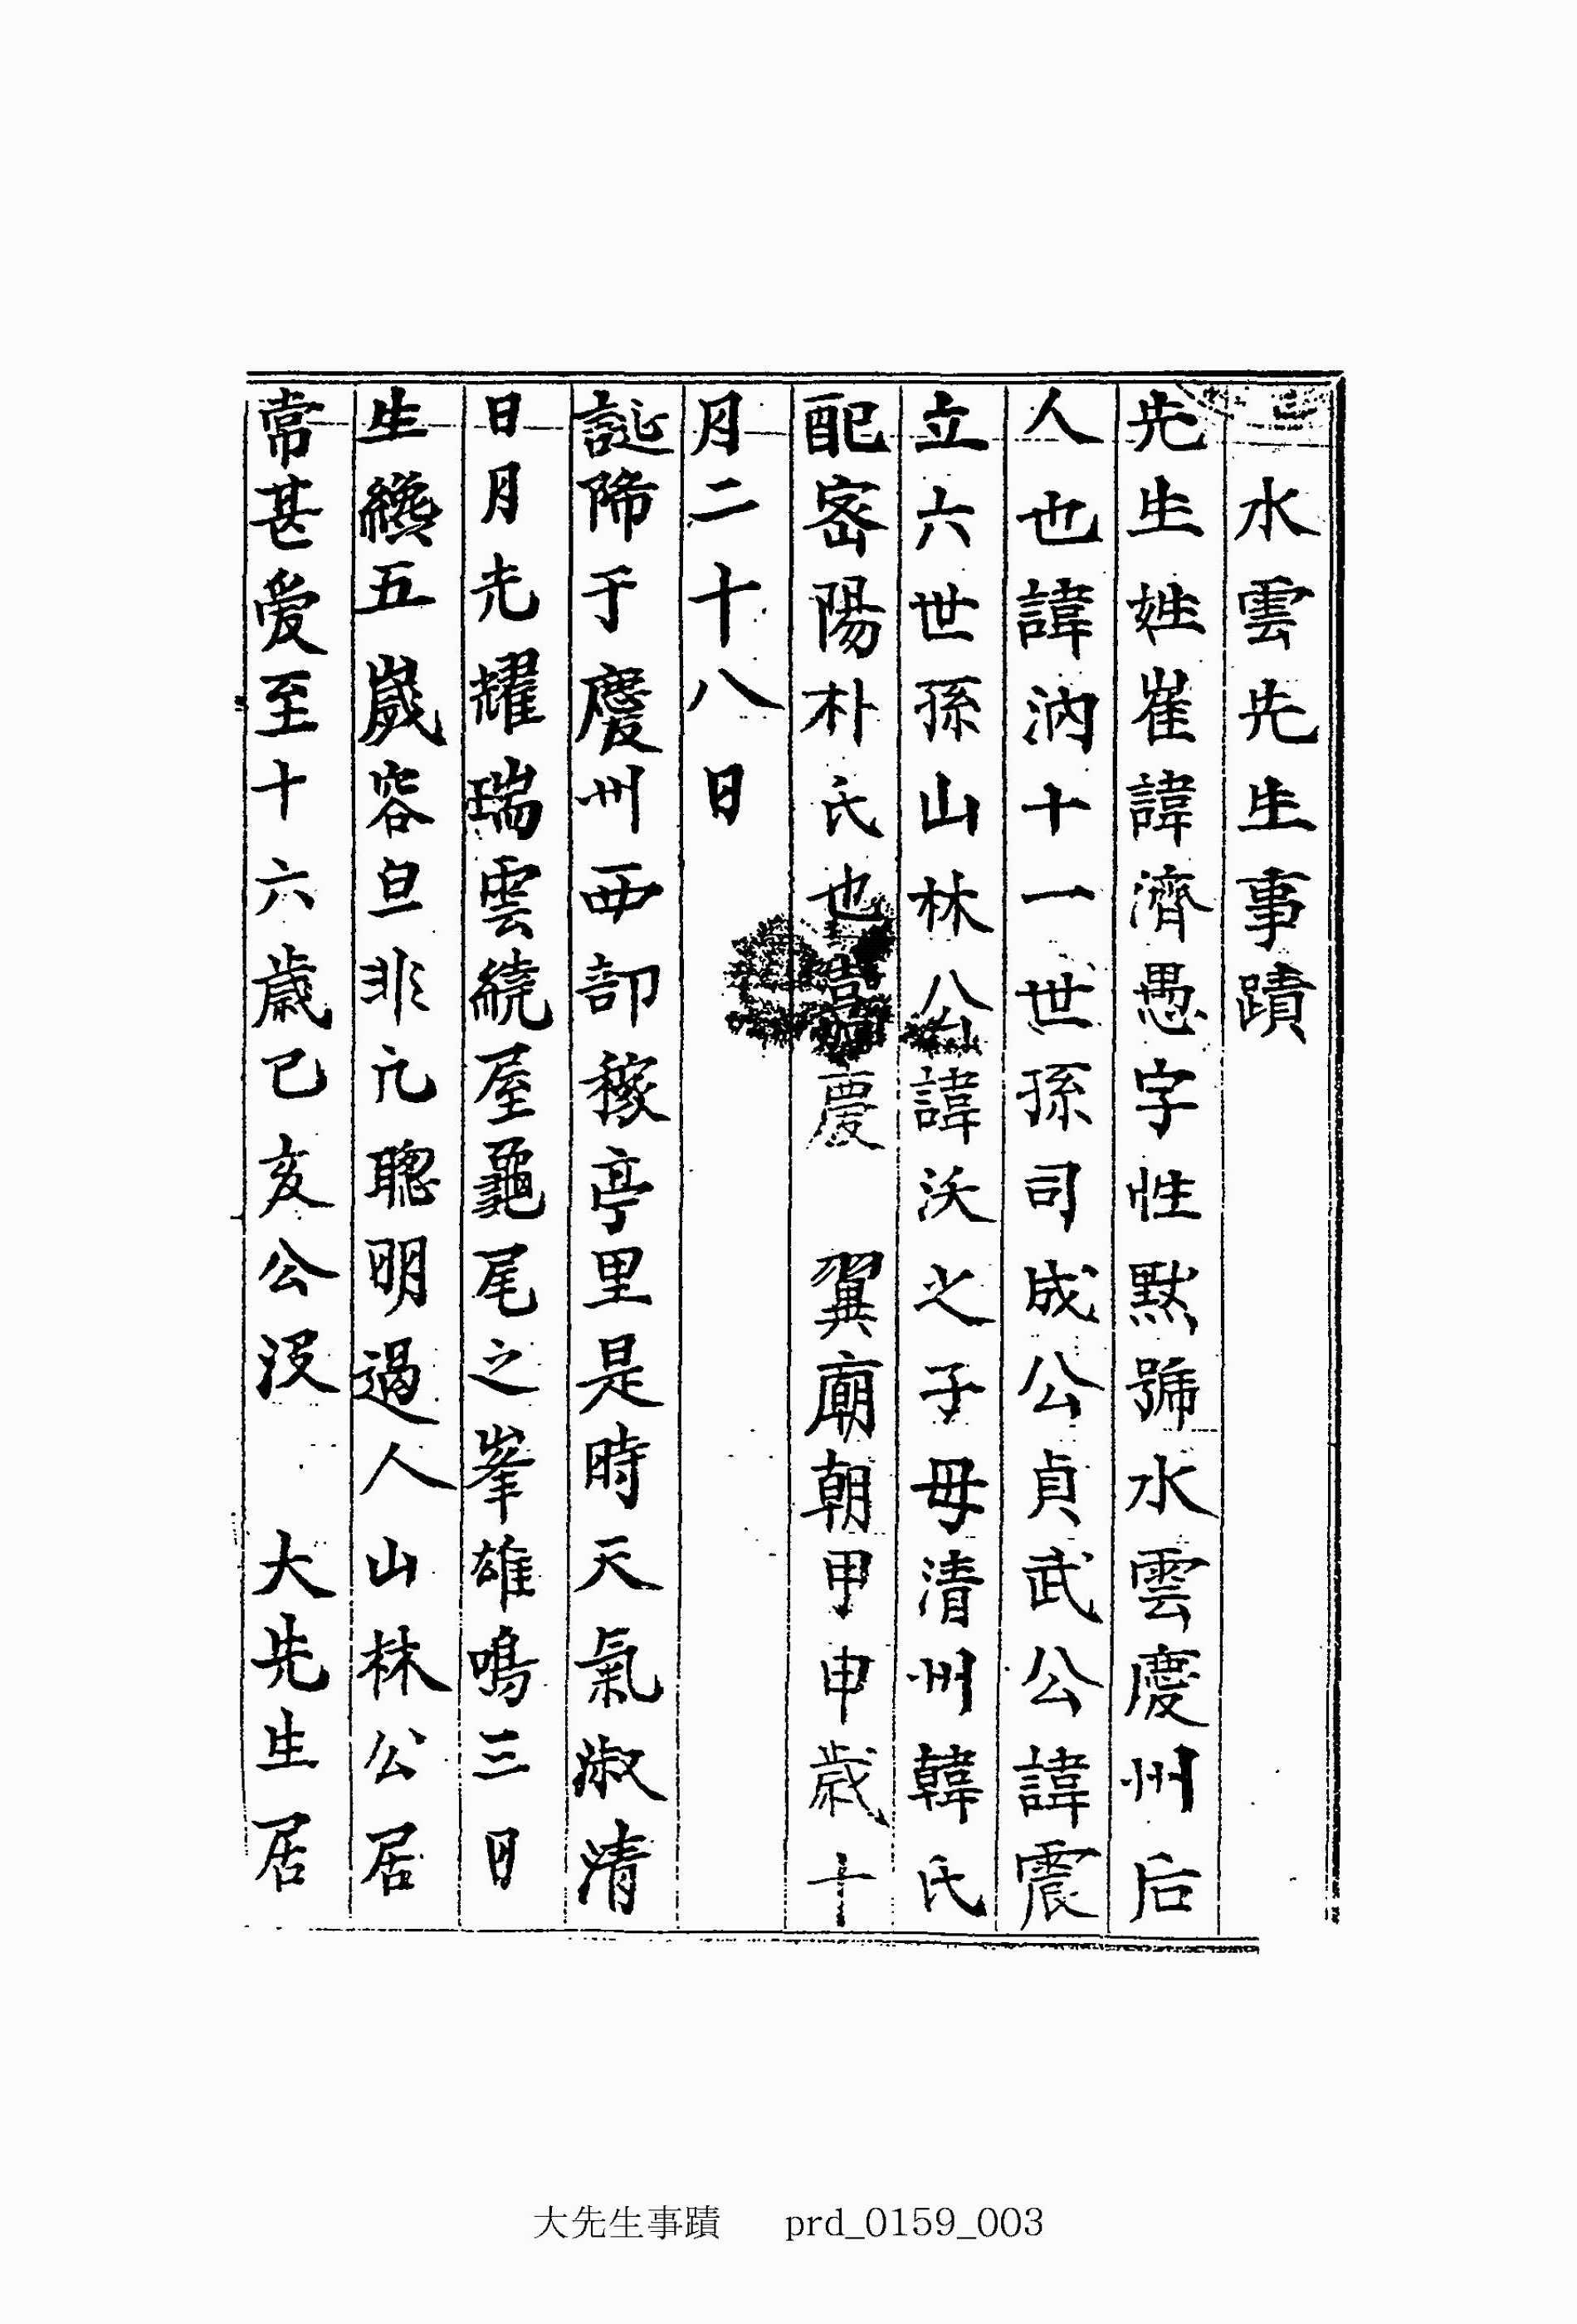 水雲先生事蹟
先生姓崔諱濟愚字性黙號水雲慶州后
人也諱汭十一世孫司成公貞武公諱震
立六世孫山林公諱沃之子母清州韓氏
配密陽朴氏也慶 翼廟朝甲申歲十
月二十八日
誕降于慶州西部稼亭里是時天氣淑清
日月光耀瑞雲繞屋龜尾之峯雄鳴三日
生纔五歲容皃非凢聰明過人山林公居
常甚愛至十六歲己亥公没 大先生居
大先生事蹟 prd_0159_003